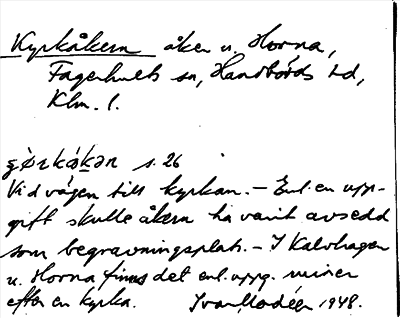 Kyrkåkern åker u. Horna,
Fagerhults sn, Handbörds hd,
Klm. l.
s. 26
Vid vägen till kyrkan. – Enl. en upp-
gift skulle åkern ha varit avsedd
som begravningsplats. – I Kalvhagen
u. Horna finns det enl. uppg. ruiner
efter en kyrka. Ivar Modéer 1948.